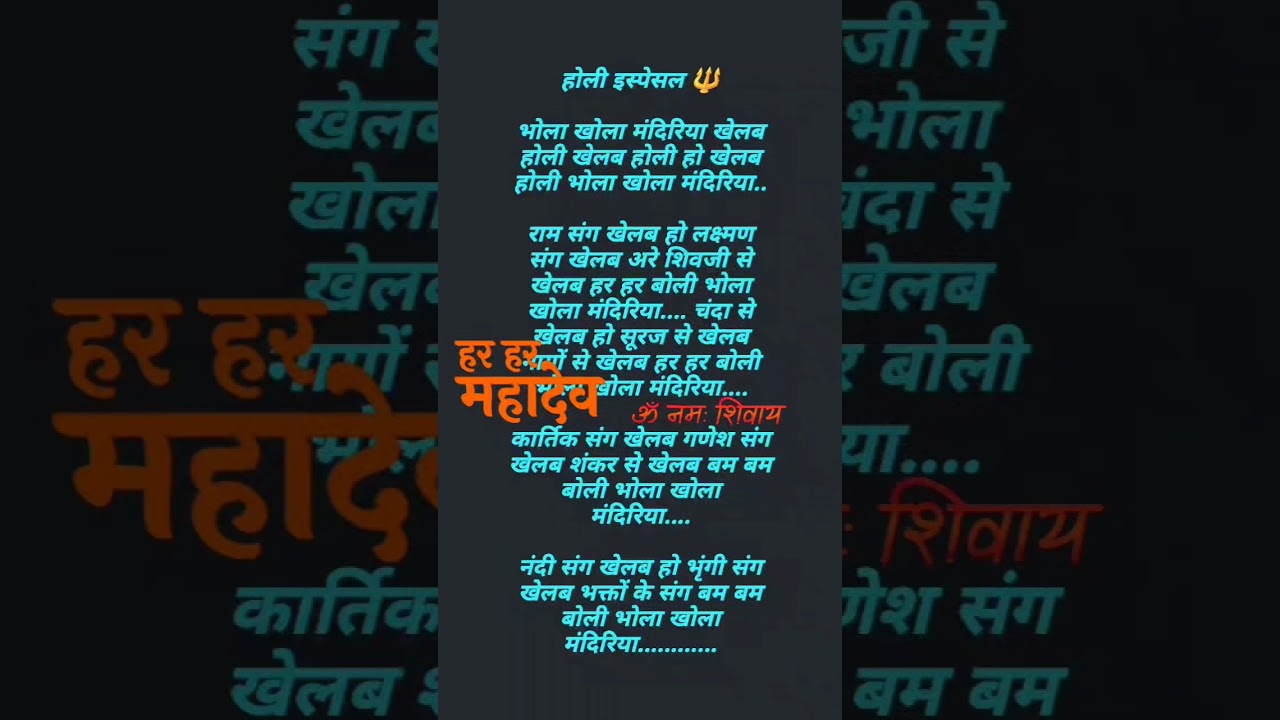 होली इस्पेसल 🔱
भोला खोला मंदिरिया खेलब
होली खेलब होली हो खेलब
होली भोला खोला मंदिरिया..
राम संग खेलब हो लक्ष्मण
संग खेलब अरे शिवजी से
खेलब हर हर बोली भोला
खोला मंदिरिया.... चंदा से
खेलब हो सूरज से खेलब
से खेलब हर हर बोली
खोला मंदिरिया....
हर हर
महादेव
ॐ नमः शिवाय
कार्तिक संग खेलब गणेश संग
खेलब शंकर से खेलब बम बम
बोली भोला खोला
मंदिरिया....
नंदी संग खेलब हो भृंगी संग
खेलब भक्तों के संग बम बम
बोली भोला खोला
मंदिरिया............